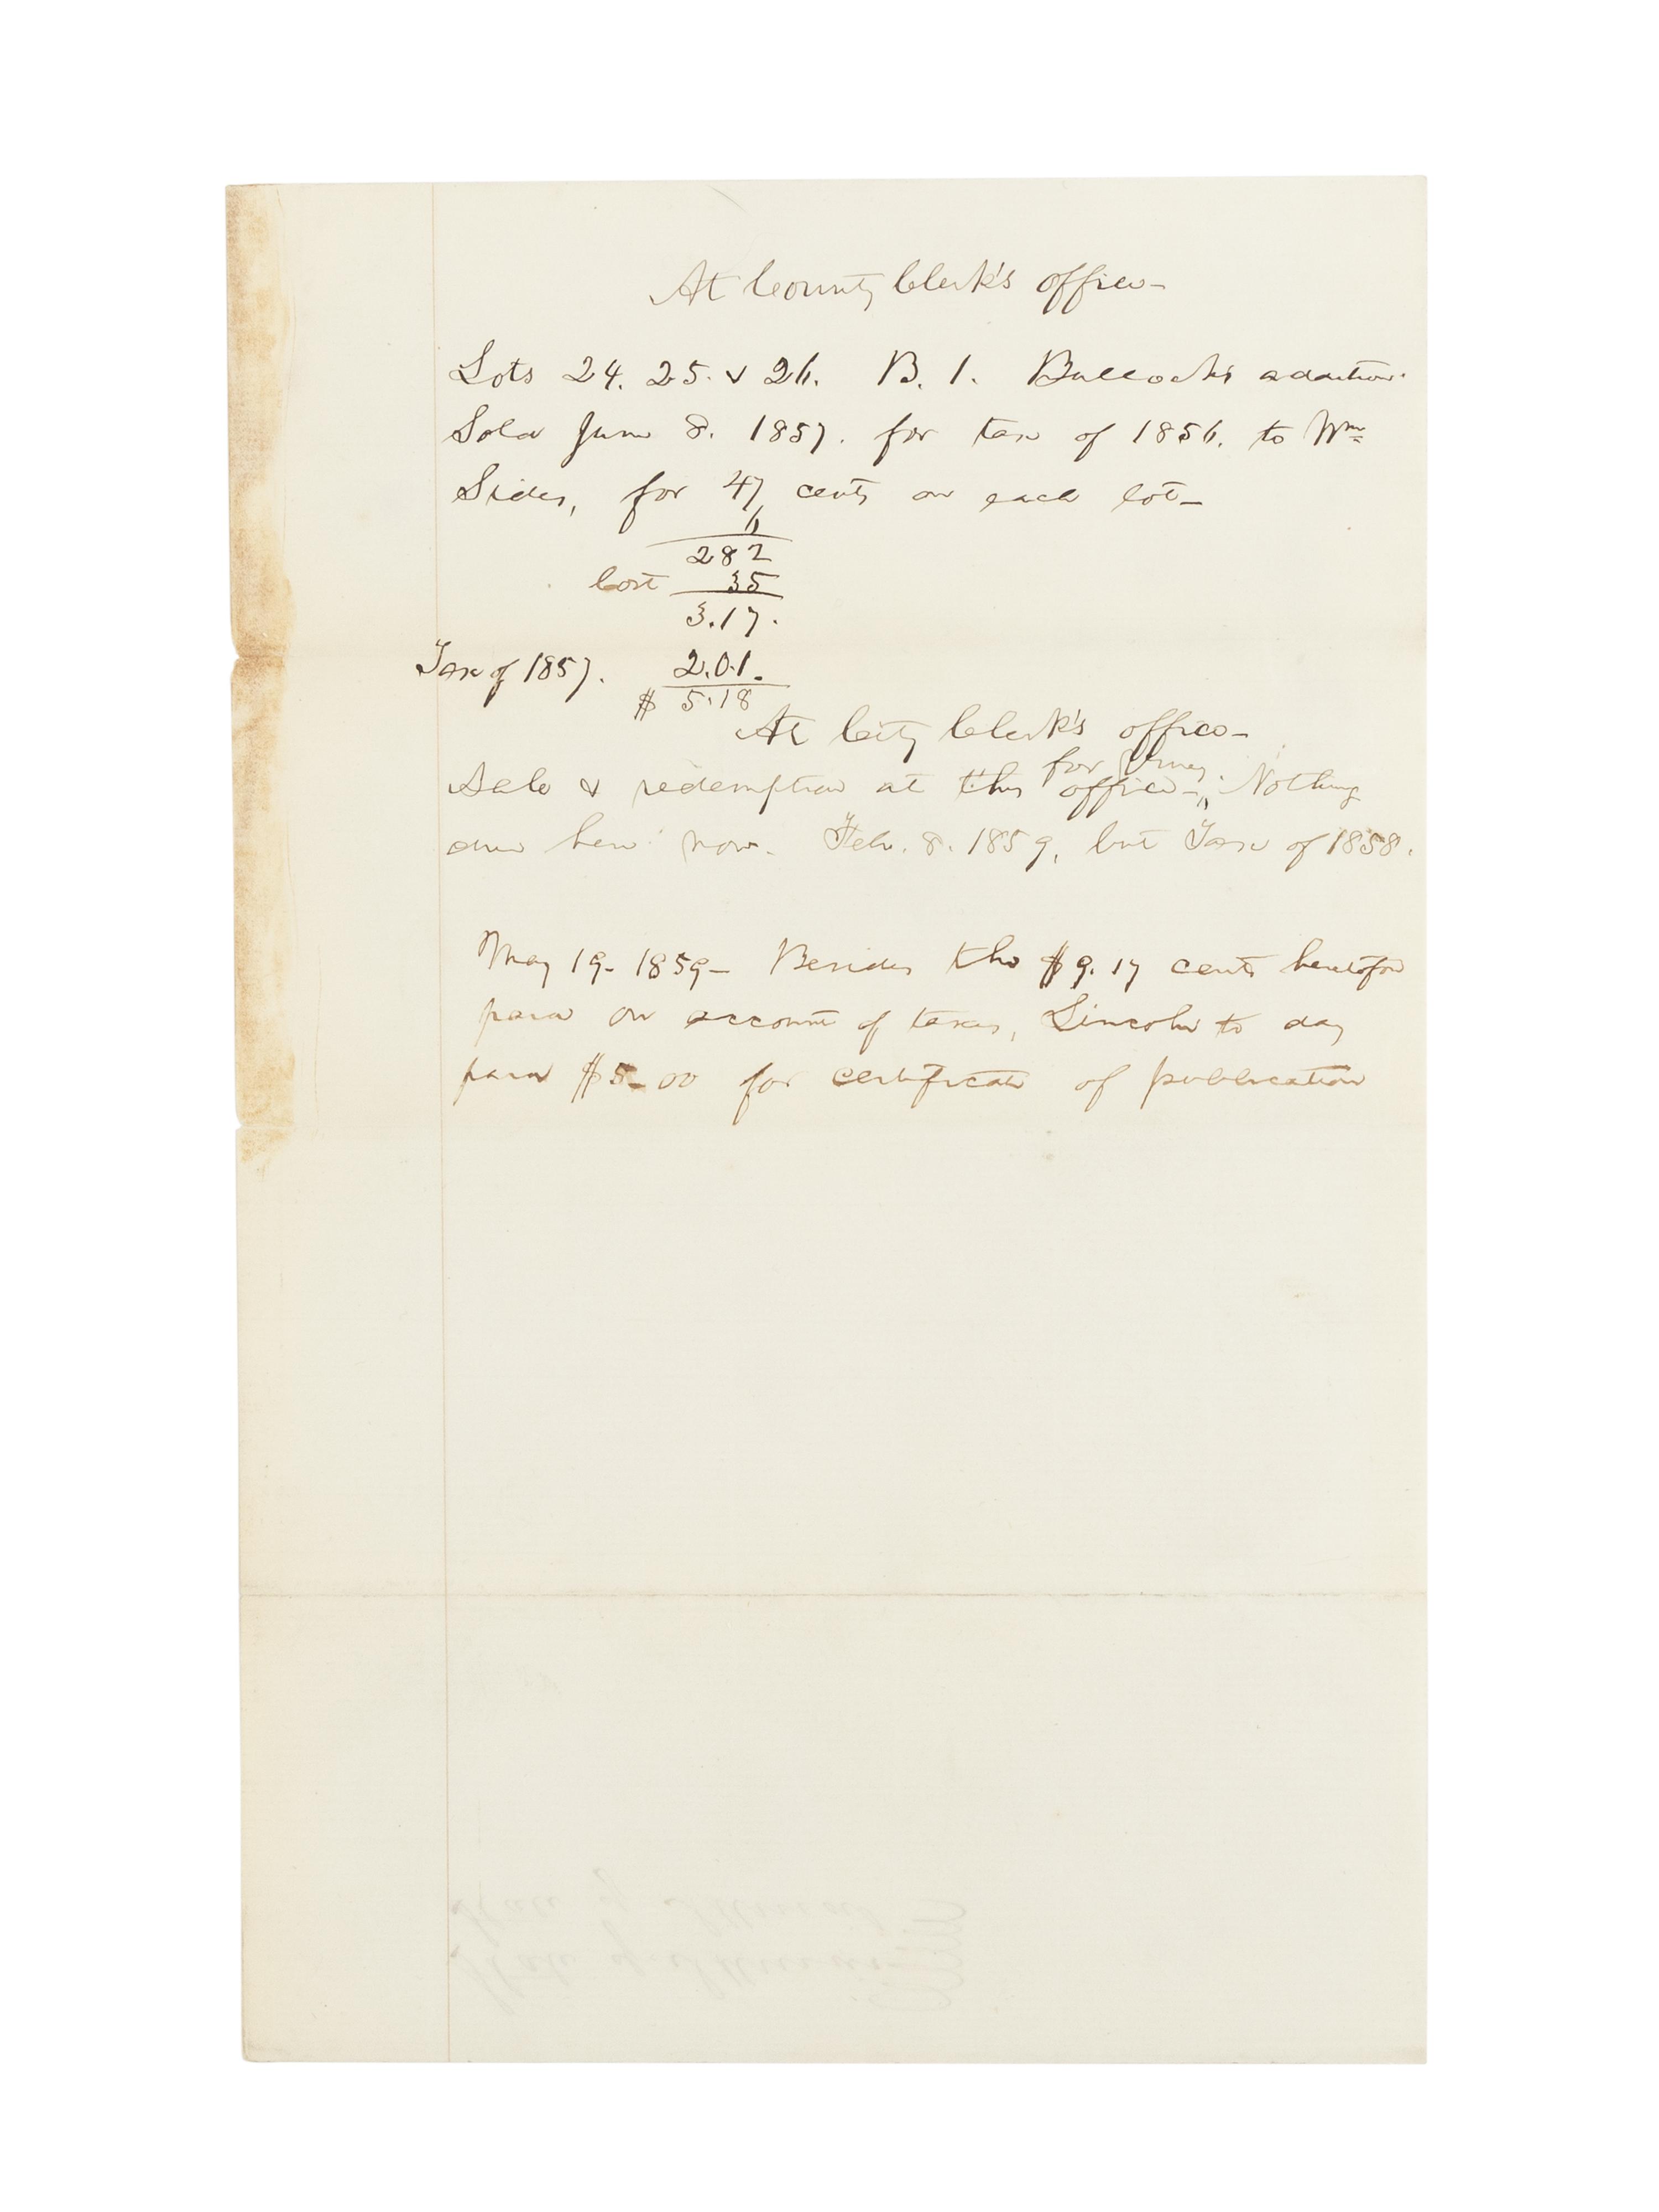 At County Clerk's office—
Lots 24. 25. & 26. B. 1. Bullock's addition.
Sold June 8. 1857. for tax of 1856. to Wm
Sides, for 47 cents on each lot—
6
282
Cost 35
3.17.
Tax of 1857. 2.01.
$ 5.18
At City Clerk's office—
for
Sale & redemption at this office—, Nothing
due here now— Feb. 8. 1859, but Tax of 1858.
May 19— 1859— Besides the $9.17 cents heretofore
paid on account of taxes, Lincoln to day
paid $5–00 for certificate of publication